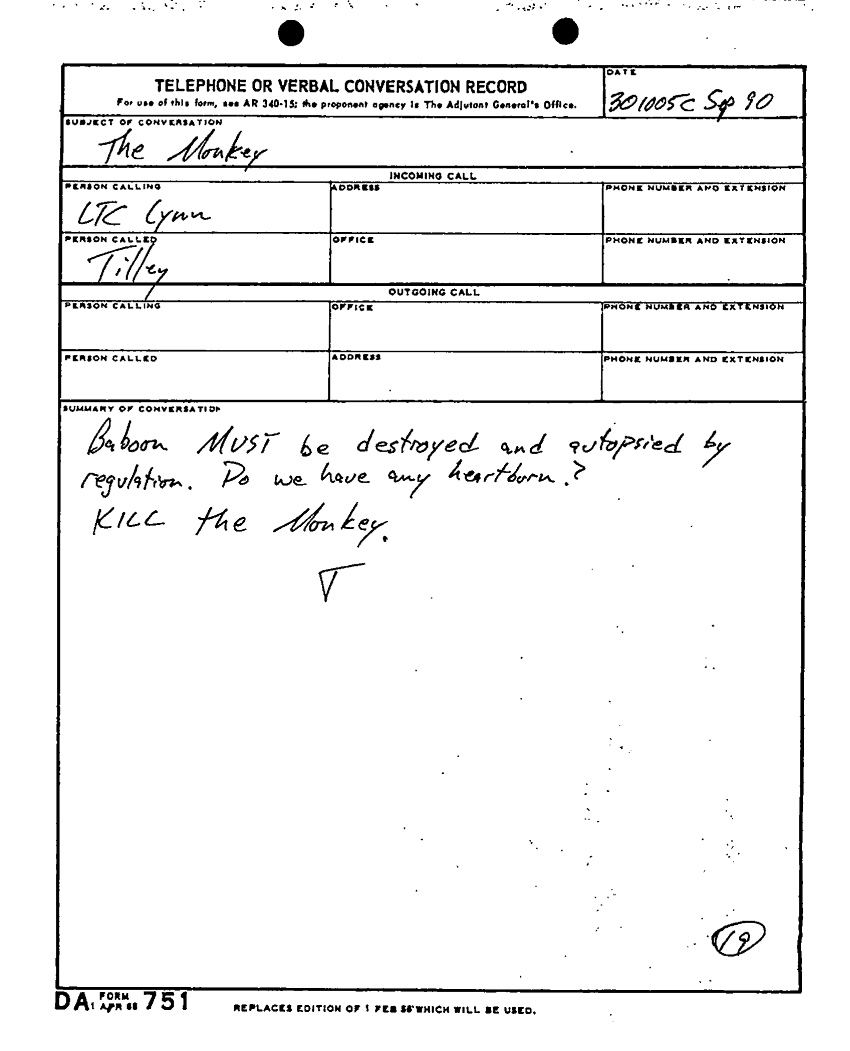 TELEPHONE OR VERBAL CONVERSATION RECORD
For use of this form, see AR 340-15; the proponent agency is The Adjutant General's Office.
DATE
301005C Sep 90
SUBJECT OF CONVERSATION
The Monkey
INCOMING CALL
PERSON CALLING
LTC Lynn
ADDRESS
PHONE NUMBER AND EXTENSION
PERSON CALLED
Tilley
OFFICE
PHONE NUMBER AND EXTENSION
OUTGOING CALL
PERSON CALLING
OFFICE
PHONE NUMBER AND EXTENSION
PERSON CALLED
ADDRESS
PHONE NUMBER AND EXTENSION
SUMMARY OF CONVERSATION
Baboon MUST be destroyed and autopsied by
regulation. Do we have any heartburn?
KILL the Monkey.
T
19
DA FORM 1 APR 66 751
REPLACES EDITION OF 1 FEB 58 WHICH WILL BE USED.